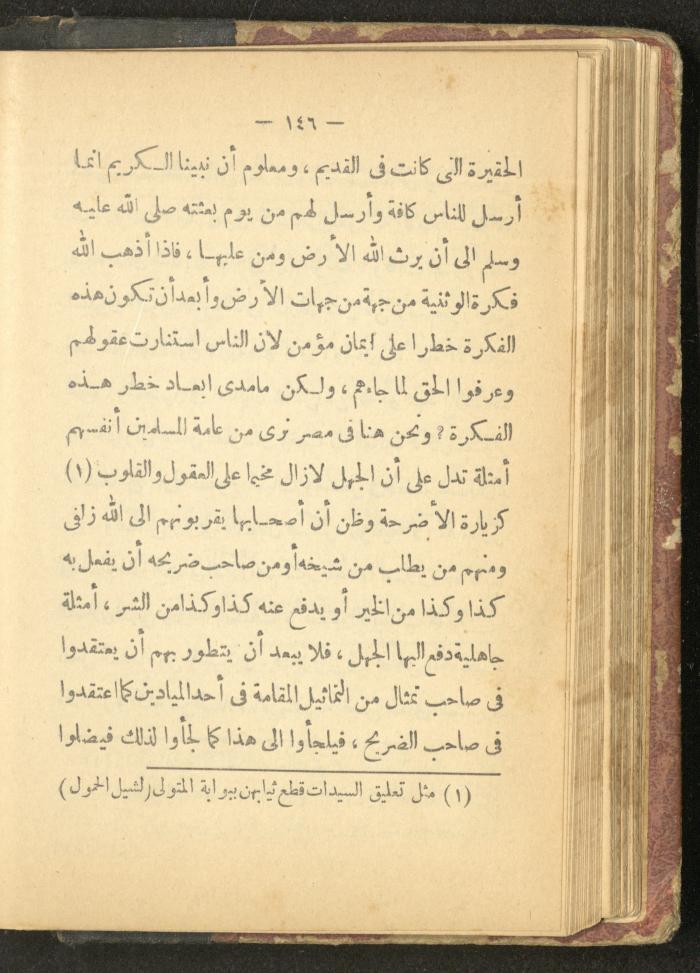 — ١٤٦ —
الحقيرة التى كانت فى القديم ، ومعلوم أن نبينا الـكريم انمـا
أرسل للناس كافة وأرسل لهم من يوم بعثته صلى الله عليه
وسلم الى أن يرث الله الأرض ومن عليهـا ، فاذا أذهب الله
فكرة الوثنية من جهة من جهات الأرض وأبعد أن تكون هذه
الفكرة خطرا على إيمان مؤمن لان الناس استنارت عقولهم
وعرفوا الحق لما جاءهم ، ولـكن مامدى ابعـاد خطر هـذه
الفـكرة ؟ ونحن هنا فى مصر نرى من عامة المسلمين أنفسهم
أمثلة تدل على أن الجهل لازال مخيما على العقول والقلوب (١)
كزيارة الأضرحة وظن أن أصحـابها يقربونهم الى الله زلفى
ومنهم من يطاب من شيخه أو من صاحب ضريحه أن يفعل به
كذا وكذا من الخير أو يدفع عنه كذا وكذا من الشر ، أمثلة
جاهلية دفع اليها الجهل ، فلا يبعد أن يتطور بهم أن يعتقدوا
فى صاحب تمثال من التماثيل المقامة فى أحد الميادين كما اعتقدوا
فى صاحب الضريح ، فيلجأوا الى هذا كما لجأوا لذلك فيضلوا
(١) مثل تعليق السيدات قطع ثيابهن ببوابة المتولى (لشيل الحمول)